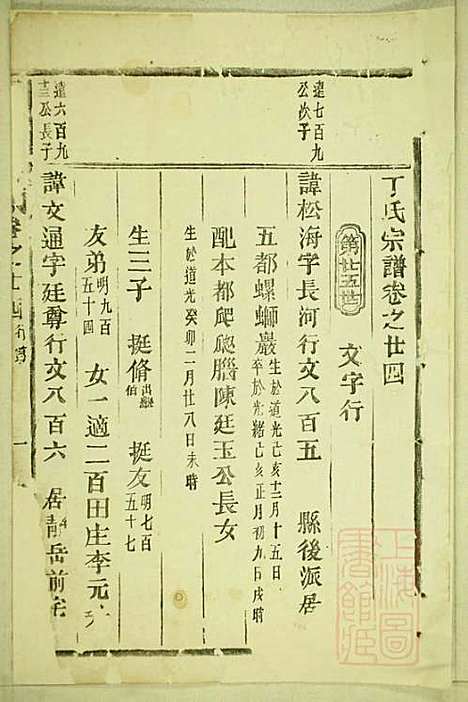 丁氏宗譜卷之廿四
第廿五世
文字行
遠七百九
公次子
諱松海字長河行文八百五 縣後派居
五都螺螄巖
生於道光乙亥十二月十五日
卒於光緒乙亥正月初九日戌時
配本都爬𦝫腦陳廷玉公長女
生於道光癸卯二月廿八日未時
生三子 挺脩 出繼 伯 挺友 明七百 五十七
友弟 明九百 五十四 女一適二百田庄李元
遠六百九
十三公長子
諱文通字廷尊行文八百六 居靜岳前宅
卷之廿四
一
上海圖書館藏